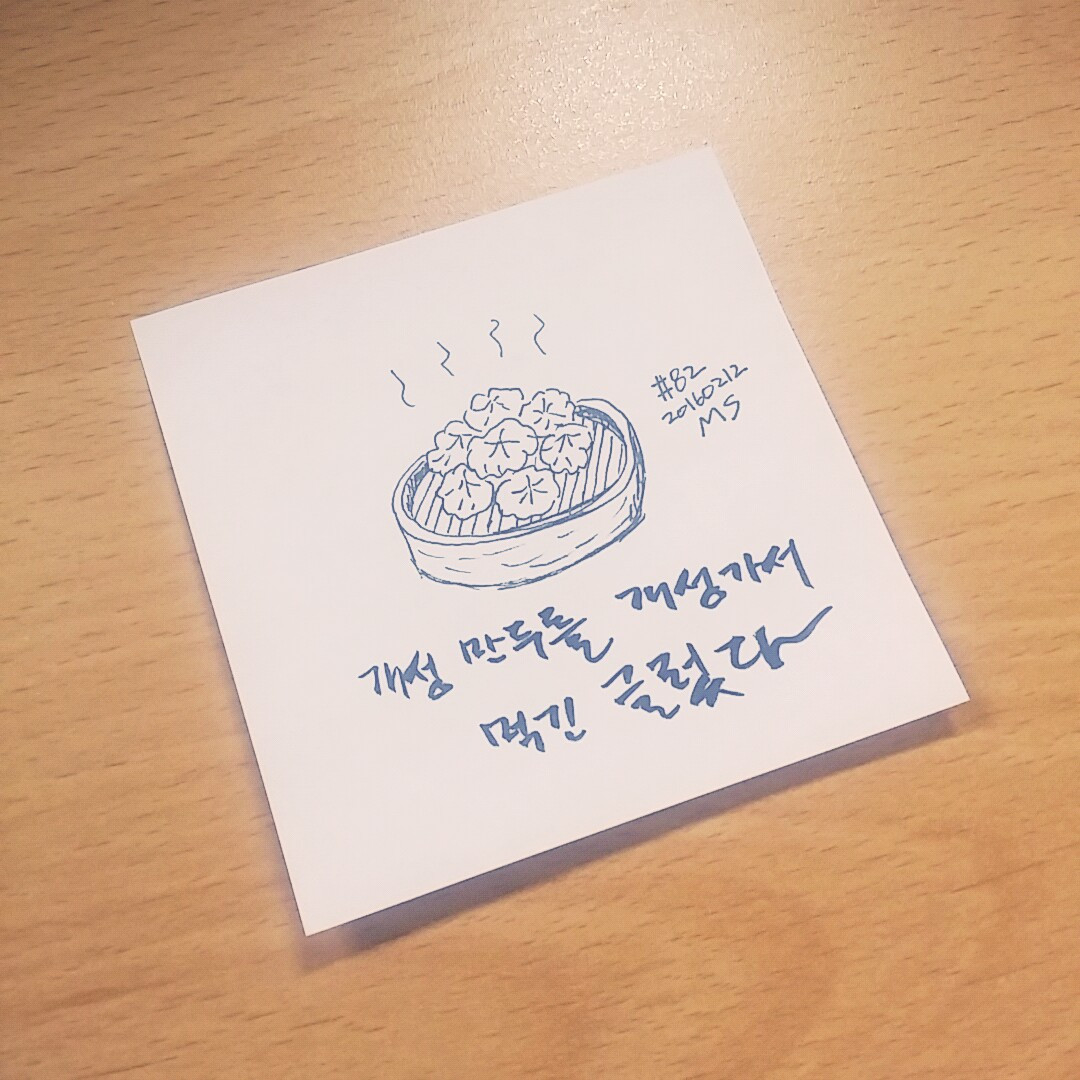 #82
20160212
MS
개성 만두를 개성가서
먹긴 글렀다